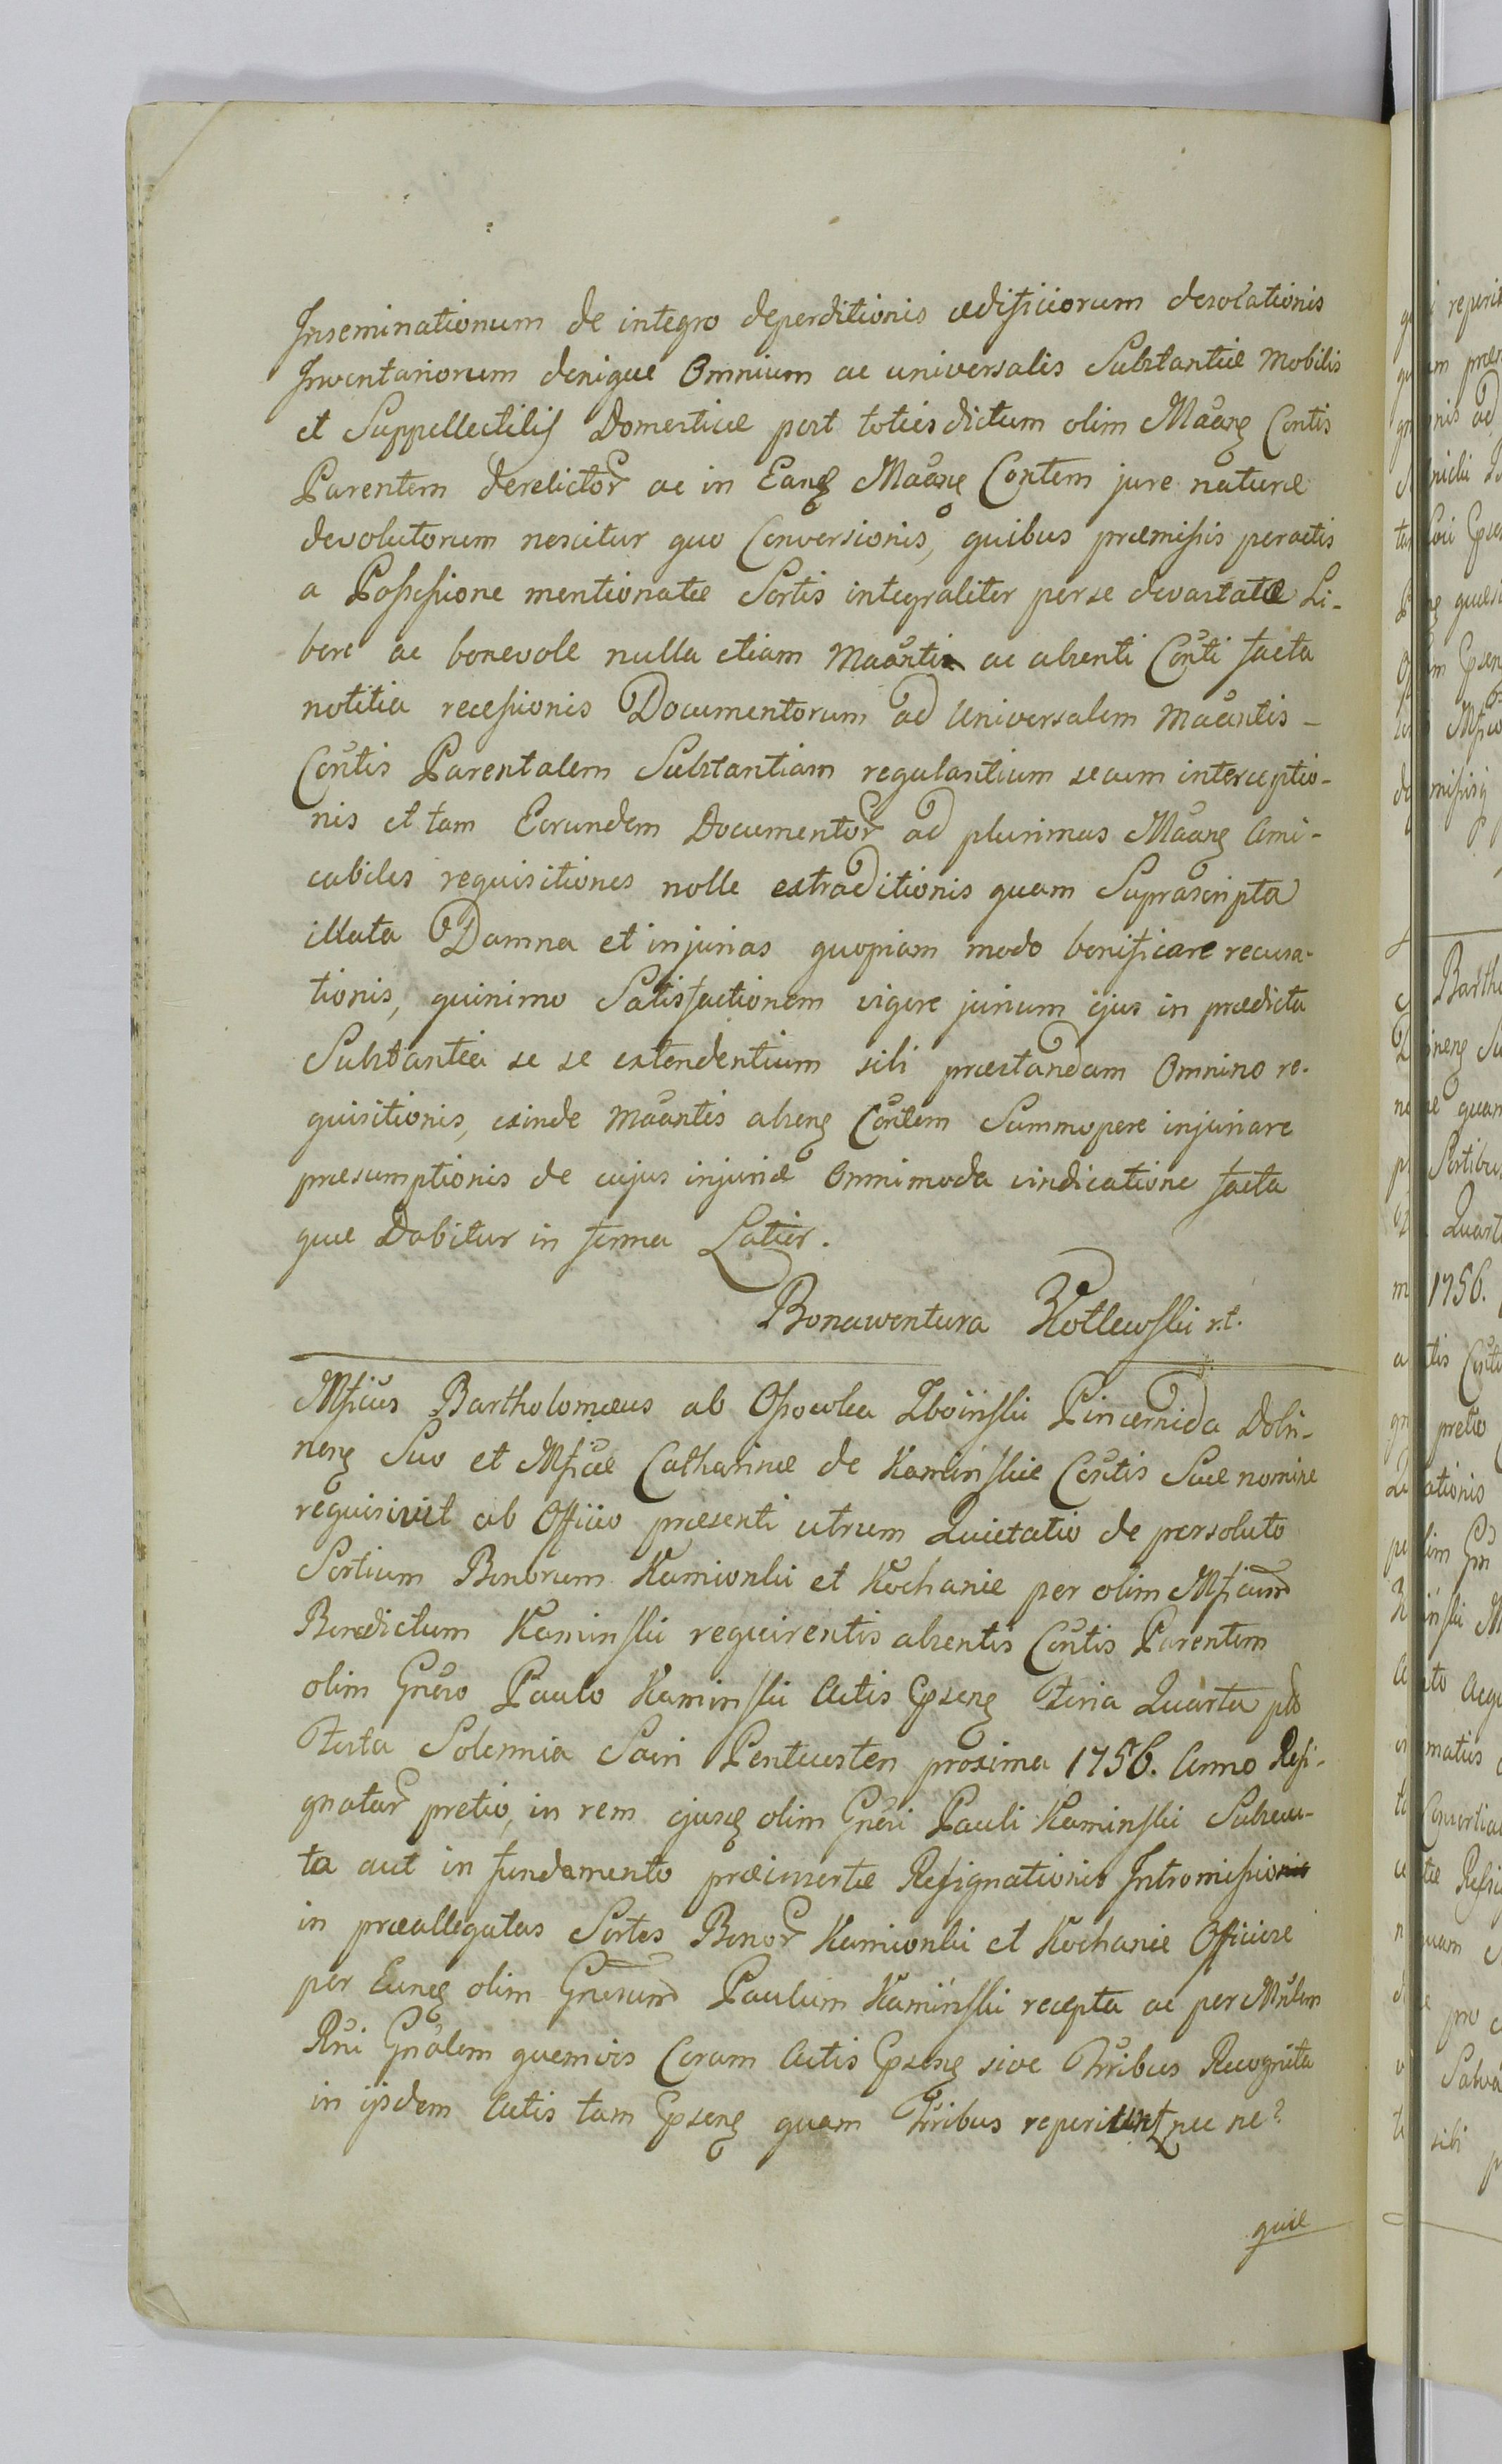 Inseminationum de integro deperditionis ædificiorum desolationis
Inventariorum denique Omnium ac universalis Substantiæ Mobilis
et Suppellectilis Domesticæ post toties dictum olim Maang Contis
Parentem derelictor ac in Eang Maang Contem jure naturæ
devolutorum nescitur quo Conversionis, quibus præmissis peractis
a Possessione mentionatæ Sortis integraliter per se devastatæ Li-
bere ac benevole nulla etiam Maanti ac absenti Conti facta
notitia recessionis Documentorum ad Universalem Maantis -
Contis Parentalem Substantiam regulantium secum interceptio-
nis et tam Eorundem Documentor ad plurimas Maang Ami-
cabiles requisitiones nolle extraditionis quam Suprascripta
illata Damna et injurias quopiam modo bonificare recusa-
tionis, quinimo Satisfactionem vigore jurium ejus in prædicta
Substantia se se extendentium sibi præstandam Omnino re-
quisitionis, exinde Maantis abseng Contem Summopere injuriare
præsumptionis de cujus injuriæ Omnimoda vindicatione facta
quæ Dabitur in forma Latior.
Bonawentura Kotlewski r.t.
Mficus Bartholomæus ab Ossowka Zboinski Pincernida Dobri-
neng Suo et Mficæ Catharinæ de Kaminskie Contis Suæ nomine
requisivit ab Officio præsenti utrum Quietatio de persoluto
Sortium Bonorum Kamionki et Kochanie per olim Mficum
Benedictum Kaminski requirentis absentis Contis Parentem
olim Gneroso Paulo Kaminski Actis Gpseng Feria Quarta pt
Festa Solennia Sacri Pentecostes proxima 1756. Anno Resi-
gnatar pretio, in rem ejusq olim Gneri Pauli Kaminski Subsecu-
ta aut in fundamento præinsertæ Resignationis Intromissionis
in præallegatas Sortes Bonor Kamionki et Kochanie Officiose
per Eunq olim Gnerum Paulum Kaminski recepta ac per Mnlem
Rni Gnalem quemvis Coram Actis Gpseng sive Trribus Recognita
in ijsdem Actis tam Gpseng quam Trribus reperiunt nec ne?
quæ